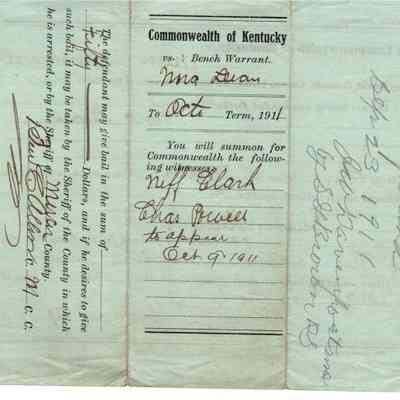 The defendant may give bail in the sum of
fifty Dollars, and if he desires to give
such bail, it may be taken by the Sheriff of the County in which
he is arrested, or by the Sheriff of Mercer County.
C. C.
Commonwealth of Kentucky
vs. Bench Warrant.
Nora Dean
To Octo Term, 1911
You will summon for
Commonwealth the follow-
ing witnesses:
Neff Clark
Chas Powell
to appear
Oct 9 - 1911
Sep 23 19
by